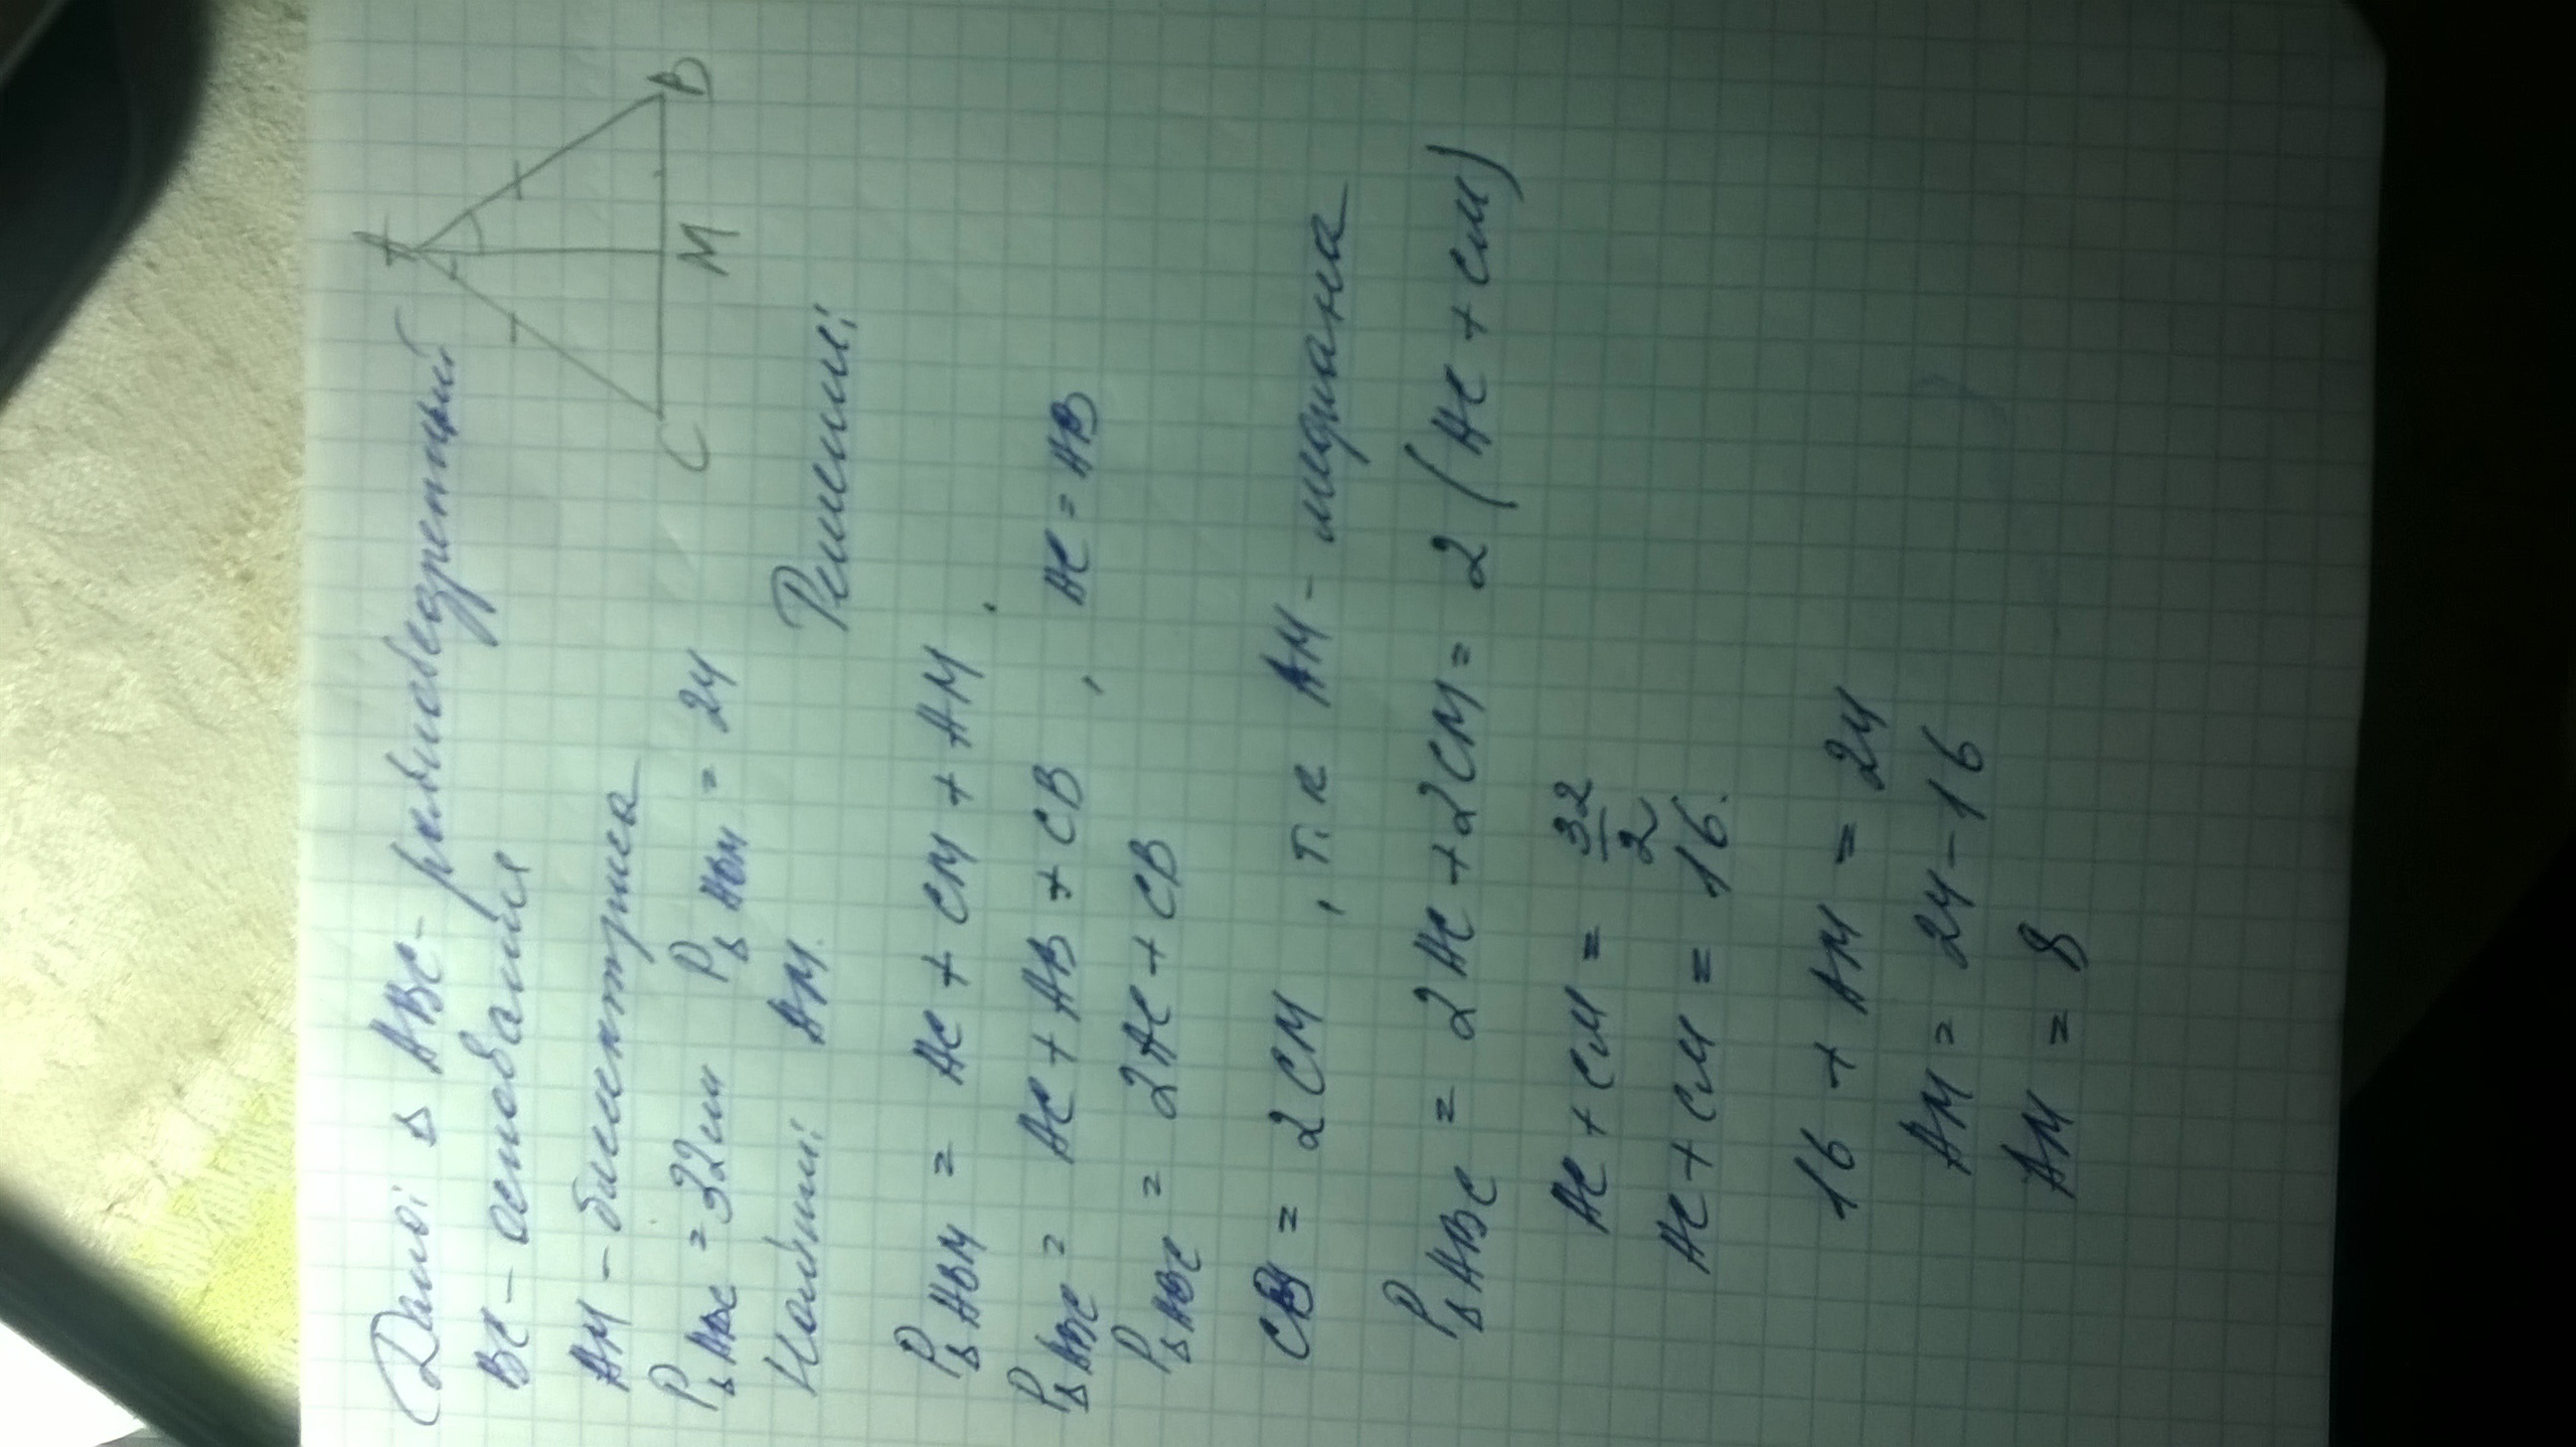 Дано: Δ ABC - равнобедренный
BC - основание
AM - биссектриса
P Δ ABC = 32 см P Δ ABM = 24
Найти: AM.
A
C
M
B
Решение:
P Δ ABM = AC + CM + AM.
P Δ ABC = AC + AB + CB , AC = AB
P Δ ABC = 2AC + CB
CB = 2CM , т. к AM - медиана
P Δ ABC = 2AC + 2CM = 2 (AC + CM)
AC + CM = 32/2
AC + CM = 16.
16 + AM = 24
AM = 24 - 16
AM = 8